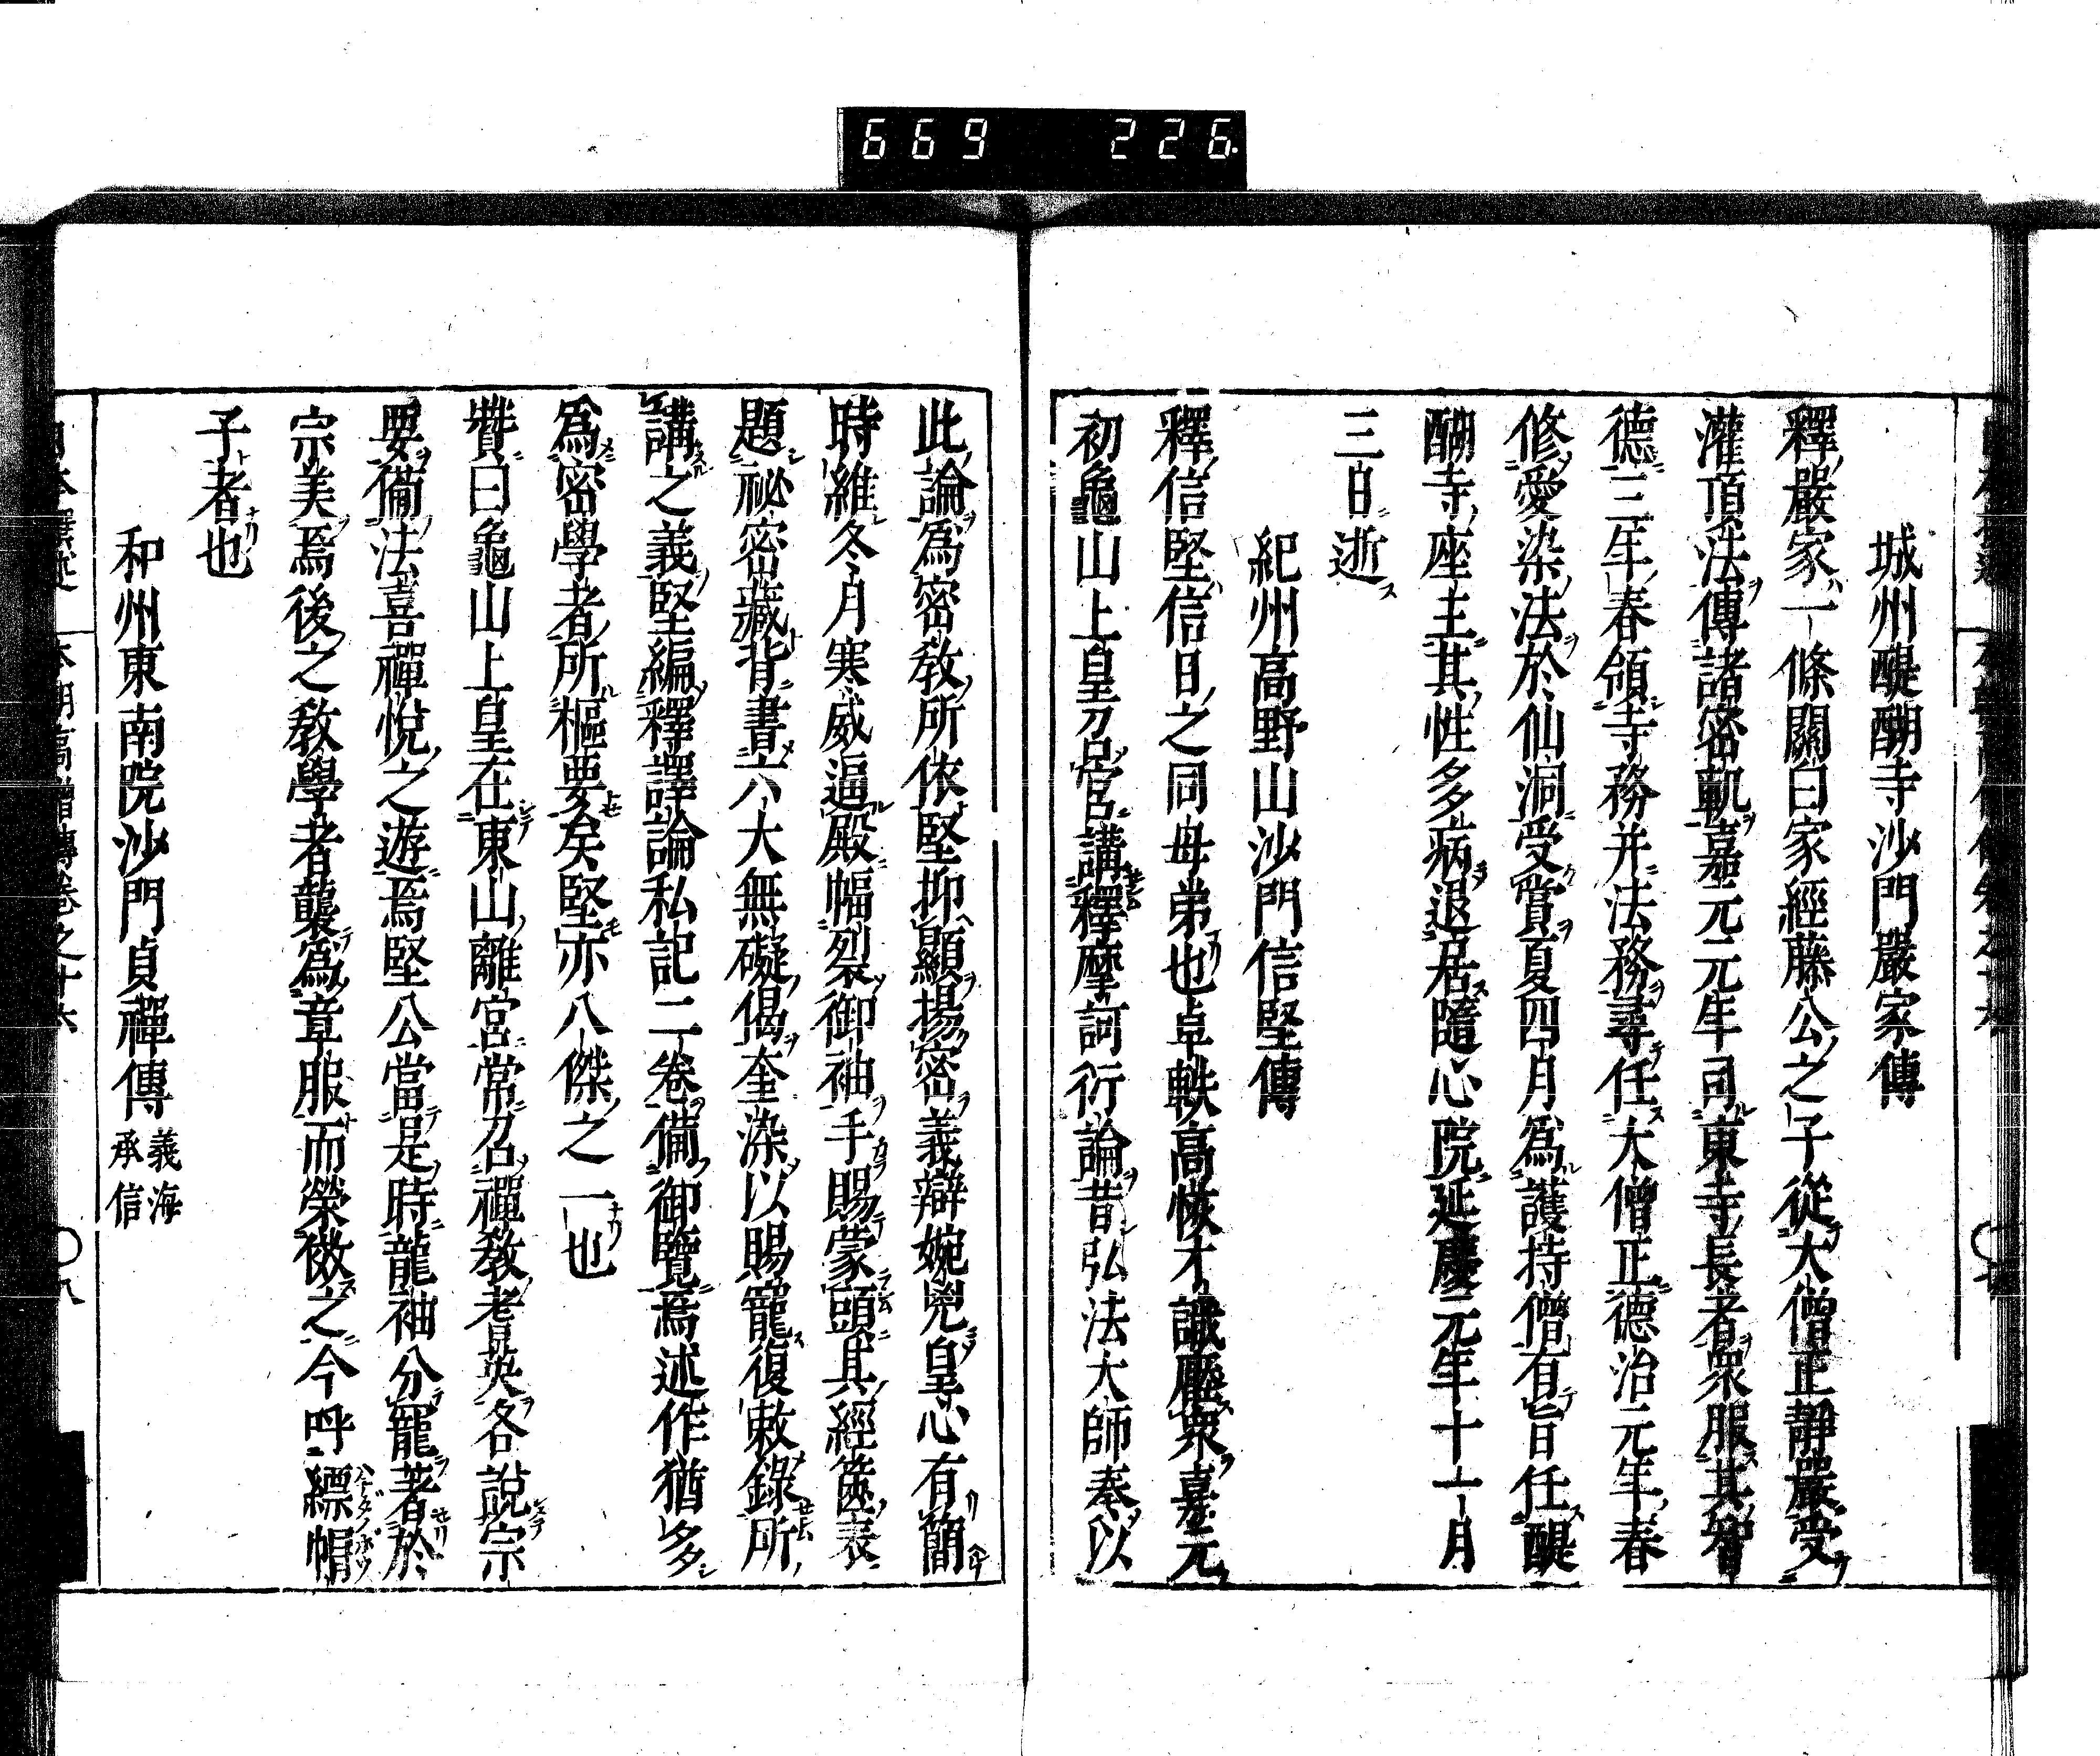 669 226
城州醍醐寺沙門嚴家傳
釋嚴家一條關白家經藤公之子從大僧正靜嚴受
灌頂法傳諸密軌嘉元元年司東寺長者衆服其智
德三年春領寺務并法務尋任大僧正德治元年春
修愛染法於仙洞受賞夏四月爲護持僧有旨任醍
醐寺座主其性多病退居隨心院延慶元年十一月
三日逝
紀州高野山沙門信堅傳
釋信堅信日之同母弟也卓軼高恢才識壓衆嘉元
初龜山上皇召宮講釋摩訶衍論昔弘法大師奏以
此論爲密教所依堅抑顯揚密義辯婉兠皇心有簡
時維冬月寒威逼殿幅裂御袖手賜蒙頭其經篋表
題祕密藏背書六大無礙偈奎染以賜寵復敕錄所
講之義堅編釋譯論私記二卷備御覽焉述作猶多
爲密學者所樞要矣堅亦八傑之一也
贊曰龜山上皇在東山離宮常召禪教耆英各說宗
要備法喜禪悅之遊焉堅公當是時龍袖分寵著於
宗美焉後之教學者襲爲章服而榮倣之今呼縹帽
子者也
和州東南院沙門貞禪傳 義海 承信
本朝高僧傳卷之十六 〇八